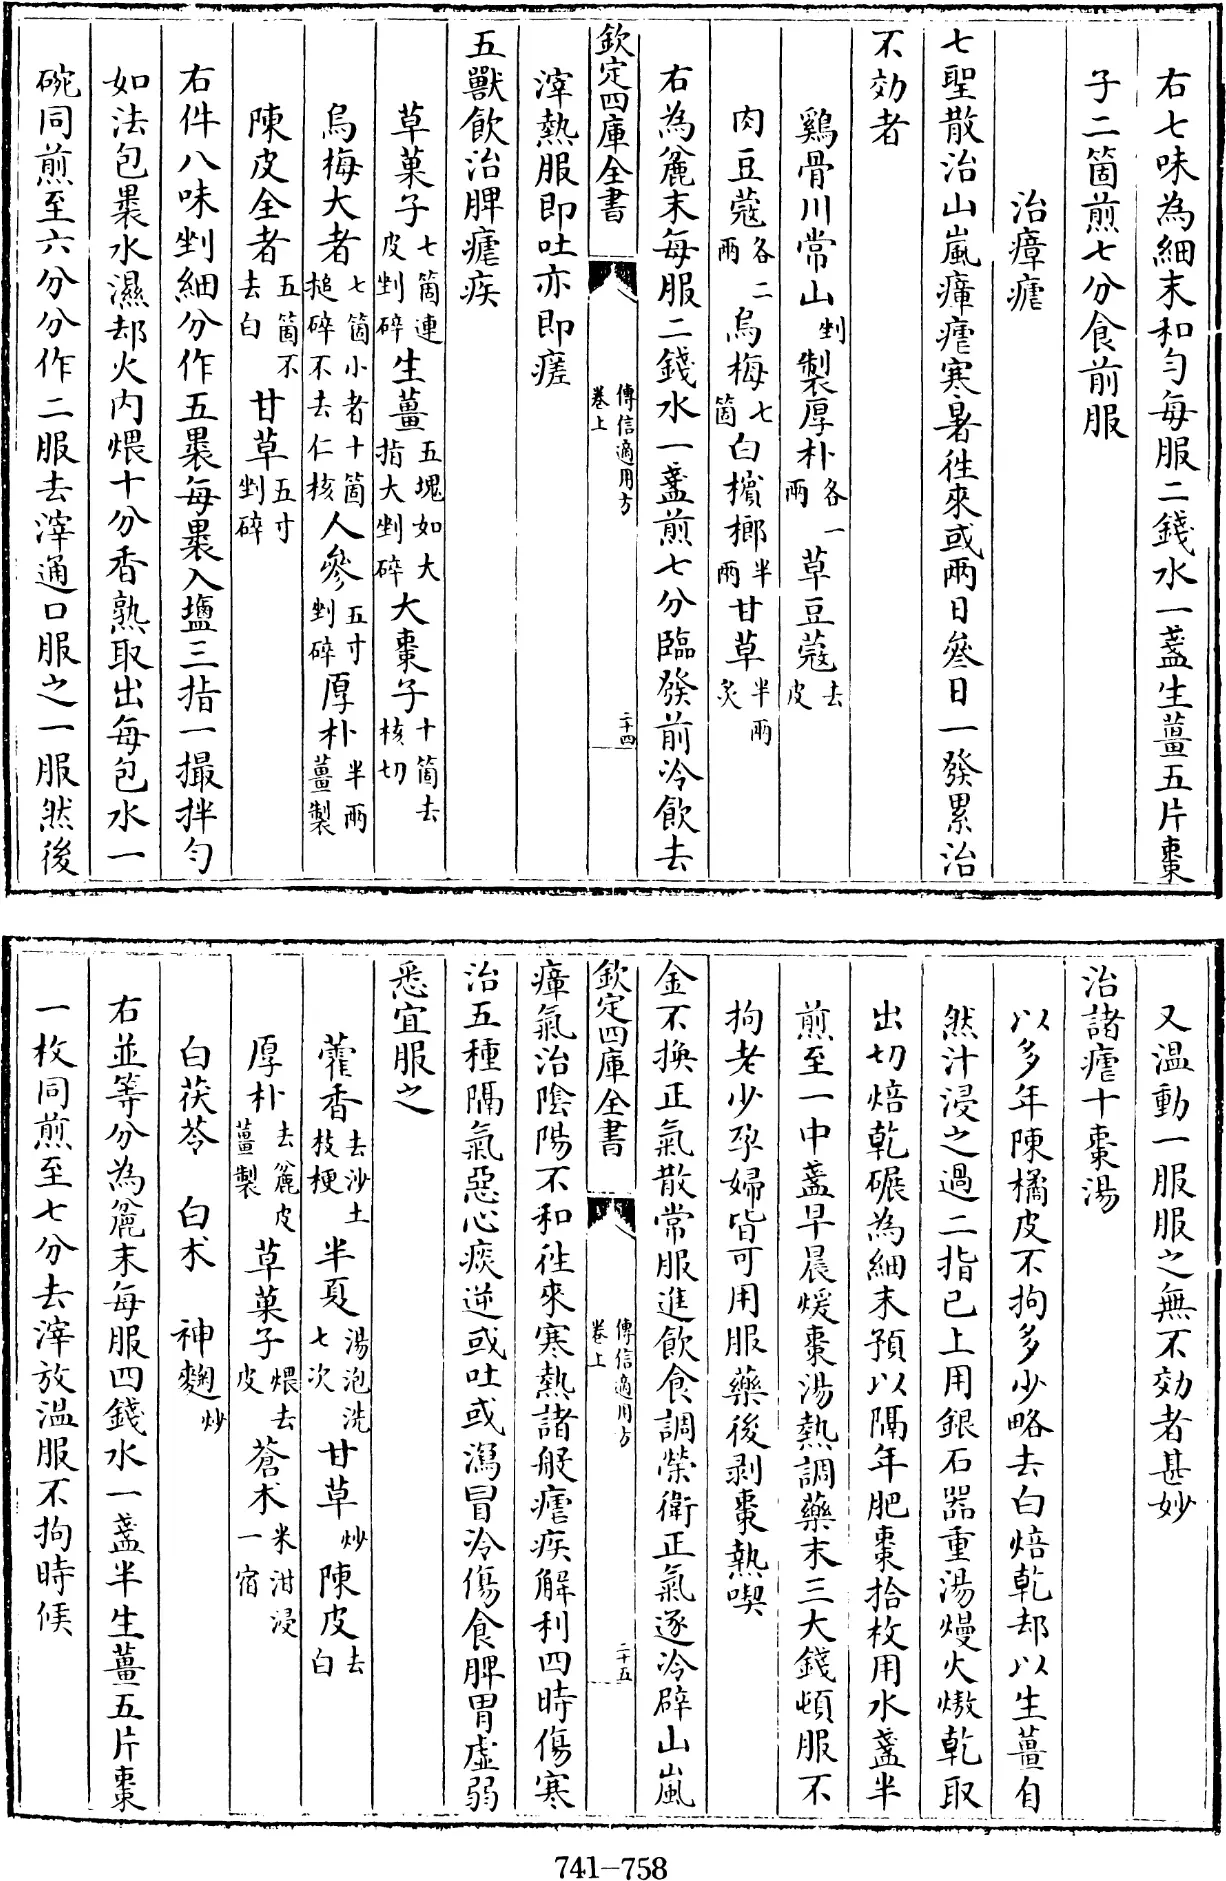 右七味為細末和勻每服二錢水一盞生薑五片棗
子二箇煎七分食前服
治瘴瘧
七聖散治山嵐瘴瘧寒暑徃來或兩日叄日一發累治
不効者
鷄骨川常山剉製厚朴各一兩草豆蔻去皮
肉豆蔻各二兩烏梅七箇白檳榔半兩甘草半兩炙
右為麄末每服二錢水一盞煎七分臨發前冷飲去
欽定四庫全書 傳信適用方卷上 二十四
滓熱服即吐亦即瘥
五獸飲治脾瘧疾
草菓子七箇連皮剉碎生薑五塊如大指大剉碎大棗子十箇去核切
烏梅大者七箇小者十箇搥碎不去仁核人參五寸剉碎厚朴半兩薑製
陳皮全者五箇不去白甘草五寸剉碎
右件八味剉細分作五裹每裹入鹽三指一撮拌勻
如法包裹水濕却火内煨十分香熟取出每包水一
碗同煎至六分分作二服去滓通口服之一服然後
又溫動一服服之無不効者甚妙
治諸瘧十棗湯
以多年陳橘皮不拘多少略去白焙乾却以生薑自
然汁浸之過二指已上用銀石器重湯熳火熬乾取
出切焙乾碾為細末預以隔年肥棗拾枚用水盞半
煎至一中盞早晨煖棗湯熱調藥末三大錢頓服不
拘老少孕婦皆可用服藥後剥棗熱喫
金不換正氣散常服進飲食調榮衛正氣逐冷辟山嵐
欽定四庫全書 傳信適用方卷上 二十五
瘴氣治陰陽不和徃來寒熱諸般瘧疾解利四時傷寒
治五種隔氣惡心痰逆或吐或瀉冒冷傷食脾胃虛弱
悉宜服之
藿香去沙土枝梗半夏湯泡洗七次甘草炒陳皮去白
厚朴去麄皮薑製草菓子煨去皮蒼术米泔浸一宿
白茯苓 白术 神麴炒
右並等分為麄末每服四錢水一盞半生薑五片棗
一枚同煎至七分去滓放溫服不拘時候
741-758